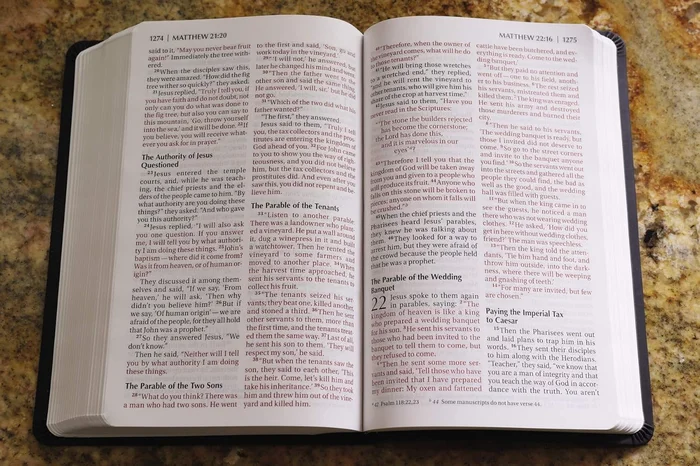 1274 | MATTHEW 21:20
said to it, "May you never bear fruit
again!" Immediately the tree with-
ered.
20 When the disciples saw this,
they were amazed. "How did the fig
tree wither so quickly?" they asked.
21 Jesus replied, "Truly I tell you, if
you have faith and do not doubt, not
only can you do what was done to
the fig tree, but also you can say to
this mountain, 'Go, throw yourself
into the sea,' and it will be done. 22 If
you believe, you will receive what-
ever you ask for in prayer."
The Authority of Jesus
Questioned
23 Jesus entered the temple
courts, and, while he was teach-
ing, the chief priests and the el-
ders of the people came to him. "By
what authority are you doing these
things?" they asked. "And who gave
you this authority?"
24 Jesus replied, "I will also ask
you one question. If you answer
me, I will tell you by what authori-
ty I am doing these things. 25 John's
baptism—where did it come from?
Was it from heaven, or of human or-
igin?"
They discussed it among them-
selves and said, "If we say, 'From
heaven,' he will ask, 'Then why
didn't you believe him?' 26 But if
we say, 'Of human origin'—we are
afraid of the people, for they all hold
that John was a prophet."
27 So they answered Jesus, "We
don't know."
Then he said, "Neither will I tell
you by what authority I am doing
these things.
The Parable of the Two Sons
28 "What do you think? There was
a man who had two sons. He went
to the first and said, 'Son, go and
work today in the vineyard.'
29 "'I will not,' he answered, but
later he changed his mind and went.
30 "Then the father went to the
other son and said the same thing.
He answered, 'I will, sir,' but he did
not go.
31 "Which of the two did what his
father wanted?"
"The first," they answered.
Jesus said to them, "Truly I tell
you, the tax collectors and the pros-
titutes are entering the kingdom of
God ahead of you. 32 For John came
to you to show you the way of righ-
teousness, and you did not believe
him, but the tax collectors and the
prostitutes did. And even after you
saw this, you did not repent and be-
lieve him.
The Parable of the Tenants
33 "Listen to another parable:
There was a landowner who plant-
ed a vineyard. He put a wall around
it, dug a winepress in it and built
a watchtower. Then he rented the
vineyard to some farmers and
moved to another place. 34 When
the harvest time approached, he
sent his servants to the tenants to
collect his fruit.
35 "The tenants seized his ser-
vants; they beat one, killed another,
and stoned a third. 36 Then he sent
other servants to them, more than
the first time, and the tenants treat-
ed them the same way. 37 Last of all,
he sent his son to them. 'They will
respect my son,' he said.
38 "But when the tenants saw the
son, they said to each other, 'This
is the heir. Come, let's kill him and
take his inheritance.' 39 So they took
him and threw him out of the vine-
yard and killed him.
MATTHEW 22:16 | 1275
40 "Therefore, when the owner of
the vineyard comes, what will he do
to those tenants?"
41 "He will bring those wretches
to a wretched end," they replied,
"and he will rent the vineyard to
other tenants, who will give him his
share of the crop at harvest time."
42 Jesus said to them, "Have you
never read in the Scriptures:
"'The stone the builders rejected
has become the cornerstone;
the Lord has done this,
and it is marvelous in our
eyes'?
43 "Therefore I tell you that the
kingdom of God will be taken away
from you and given to a people who
will produce its fruit. 44 Anyone who
falls on this stone will be broken to
pieces; anyone on whom it falls will
be crushed."
45 When the chief priests and the
Pharisees heard Jesus' parables,
they knew he was talking about
them. 46 They looked for a way to
arrest him, but they were afraid of
the crowd because the people held
that he was a prophet.
The Parable of the Wedding
Banquet
22 Jesus spoke to them again
in parables, saying: 2 "The
kingdom of heaven is like a king
who prepared a wedding banquet
for his son. 3 He sent his servants to
those who had been invited to the
banquet to tell them to come, but
they refused to come.
4 "Then he sent some more ser-
vants and said, 'Tell those who have
been invited that I have prepared
my dinner: My oxen and fattened
cattle have been butchered, and ev-
erything is ready. Come to the wed-
ding banquet.'
5 "But they paid no attention and
went off—one to his field, anoth-
er to his business. 6 The rest seized
his servants, mistreated them and
killed them. 7 The king was enraged.
He sent his army and destroyed
those murderers and burned their
city.
8 "Then he said to his servants,
'The wedding banquet is ready, but
those I invited did not deserve to
come. 9 So go to the street corners
and invite to the banquet anyone
you find.' 10 So the servants went out
into the streets and gathered all the
people they could find, the bad as
well as the good, and the wedding
hall was filled with guests.
11 "But when the king came in to
see the guests, he noticed a man
there who was not wearing wedding
clothes. 12 He asked, 'How did you
get in here without wedding clothes,
friend?' The man was speechless.
13 "Then the king told the atten-
dants, 'Tie him hand and foot, and
throw him outside, into the dark-
ness, where there will be weeping
and gnashing of teeth.'
14 "For many are invited, but few
are chosen."
Paying the Imperial Tax
to Caesar
15 Then the Pharisees went out
and laid plans to trap him in his
words. 16 They sent their disciples
to him along with the Herodians.
"Teacher," they said, "we know that
you are a man of integrity and that
you teach the way of God in accor-
dance with the truth. You aren't
42 Psalm 118:22,23
44 Some manuscripts do not have verse 44.